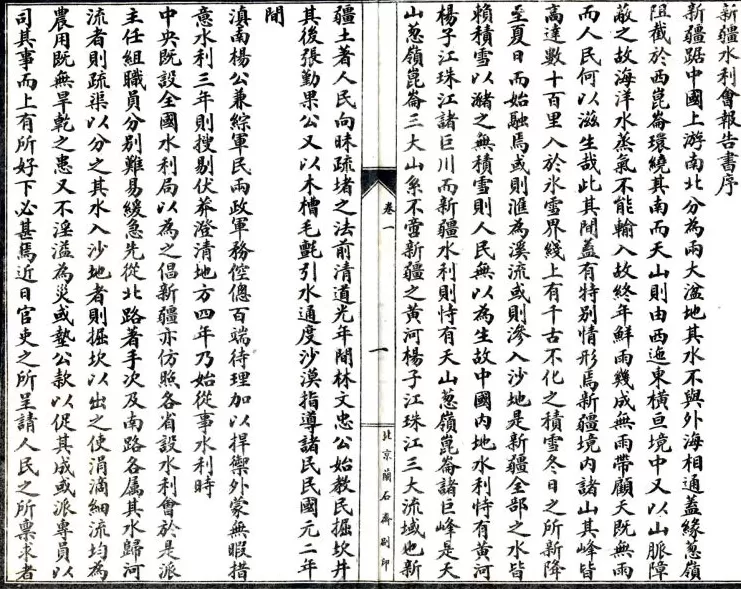 新疆水利會報告書序
新疆踞中國上游南北分為兩大盆地其水不與外海相通蓋緣葱嶺
阻截於西崑崙環繞其南而天山則由西迤東橫亘境中又以山脈障
蔽之故海洋水蒸氣不能輸入故終年鮮雨幾成無雨帶顧天既無雨
而人民何以滋生哉此其間蓋有特別情形焉新疆境內諸山其峰皆
高達數十百里入於氷雪界綫上有千古不化之積雪冬日之所新降
至夏日而始融焉或則滙為溪流或則滲入沙地是新疆全部之水皆
賴積雪以瀦之無積雪則人民無以為生故中國內地水利恃有黃河
楊子江珠江諸巨川而新疆水利則恃有天山葱嶺崑崙諸巨峰是天
山葱嶺崑崙三大山系不啻新疆之黃河楊子江珠江三大流域也新
卷一
一
北京蘭石齋刷印
疆土著人民向昧疏堵之法前清道光年間林文忠公始教民掘坎井
其後張勤果公又以木槽毛氈引水通度沙漠指導諸民民國元二年
間
滇南楊公兼綜軍民兩政軍務倥傯百端待理加以捍禦外蒙無暇措
意水利三年則搜剔伏莽澄清地方四年乃始從事水利時
中央既設全國水利局以為之倡新疆亦仿照各省設水利會於是派
主任組職員分別難易緩急先從北路著手次及南路各属其水歸河
流者則疏渠以分之其水入沙地者則掘坎以出之使涓滴細流均為
農用既無旱乾之患又不淫溢為災或墊公款以促其成或派專員以
司其事而上有所好下必甚焉近日官吏之所呈請人民之所稟求者